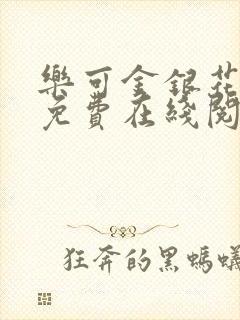 樂可金銀花
免費在綫閱
狂奔的黑螞蟻